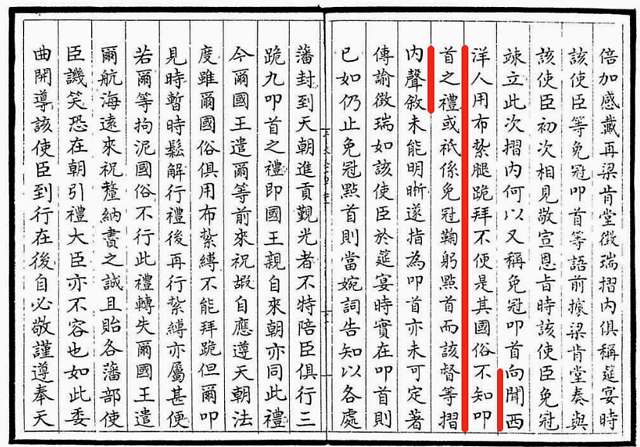 倍加感戴再梁肯堂徵瑞摺內俱稱筵宴時
該使臣等免冠叩首等語前據梁肯堂奏與
該使臣初次相見敬宣恩旨時該使臣免冠
竦立此次摺內何以又稱免冠叩首向聞西
洋人用布紮腿跪拜不便是其國俗不知叩
首之禮或祇係免冠鞠躬點首而該督等摺
內聲敘未能明晰遂指為叩首亦未可定著
傳諭徵瑞如該使臣於筵宴時實在叩首則
已如仍止免冠點首則當婉詞告知以各處
藩封到天朝進貢觀光者不特陪臣俱行三
跪九叩首之禮即國王親自來朝亦同此禮
今爾國王遣爾等前來祝嘏自應遵天朝法
度雖爾國俗俱用布紮縛不能拜跪但爾叩
見時暫時鬆解行禮後再行紮縛亦屬甚便
若爾等拘泥國俗不行此禮轉失爾國王遣
爾航海遠來祝釐納贐之誠且貽各藩部使
臣譏笑恐在朝引禮大臣亦不容也如此委
曲開導該使臣到行在後自必敬謹遵奉天